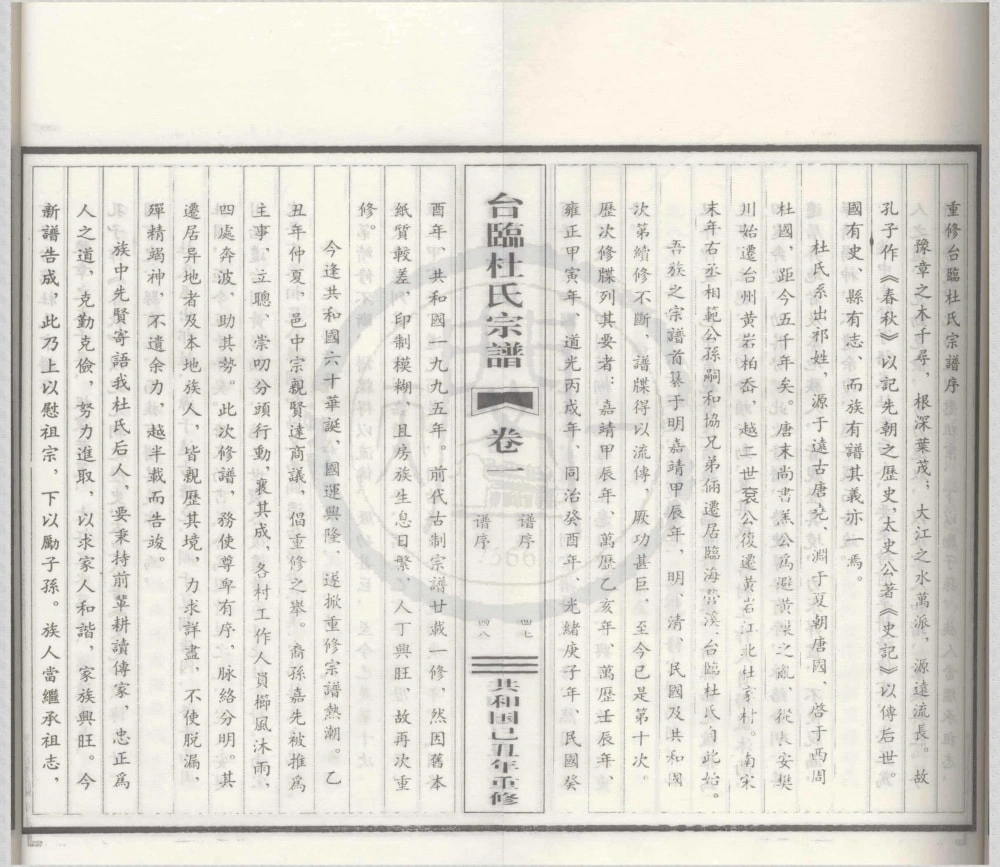 重修台臨杜氏宗譜序
豫章之木千尋，根深葉茂；大江之水萬派，源遠流長。故
孔子作《春秋》以記先朝之歷史，太史公著《史記》以傳后世。
國有史、縣有志、而族有譜其義亦一焉。
杜氏系出祁姓，源于遠古唐堯、淵于夏朝唐國、啓于西周
杜國，距今五千年矣。唐末尚書羔公爲避黃巢之亂，從長安樊
川始遷台州黃岩柏岙，越二世袞公復遷黃岩江北杜家村。南宋
末年右丞相範公孫嗣和協兄弟倆遷居臨海 溪，台臨杜氏自此始。
吾族之宗譜首纂于明嘉靖甲辰年，明、清、民國及共和國
次第續修不斷，譜牒得以流傳，厥功甚巨，至今已是第十次。
歷次修牒列其要者：嘉靖甲辰年、萬歷乙亥年、萬歷壬辰年、
雍正甲寅年、道光丙戌年、同治癸酉年、光緒庚子年、民國癸
台臨杜氏宗譜 卷一
譜序 四七
譜序 四八
共和國己丑年重修
酉年、共和國一九九五年。前代古制宗譜廿載一修，然因舊本
紙質較差，印制模糊，且房族生息日繁，人丁興旺，故再次重
修。
今逢共和國六十華誕，國運興隆，遂掀重修宗譜熱潮。乙
丑年仲夏，邑中宗親賢達商議，倡重修之舉。裔孫嘉先被推爲
主事，立聰、崇叨分頭行動，襄其成，各村工作人員櫛風沐雨，
四處奔波，助其勢。此次修譜，務使尊卑有序，脉絡分明。其
遷居异地者及本地族人，皆親歷其境，力求詳盡，不使脱漏，
殫精竭神，不遺余力，越半載而告竣。
族中先賢寄語我杜氏后人，要秉持前輩耕讀傳家，忠正爲
人之道，克勤克儉，努力進取，以求家人和諧，家族興旺。今
新譜告成，此乃上以慰祖宗，下以勵子孫。族人當繼承祖志，